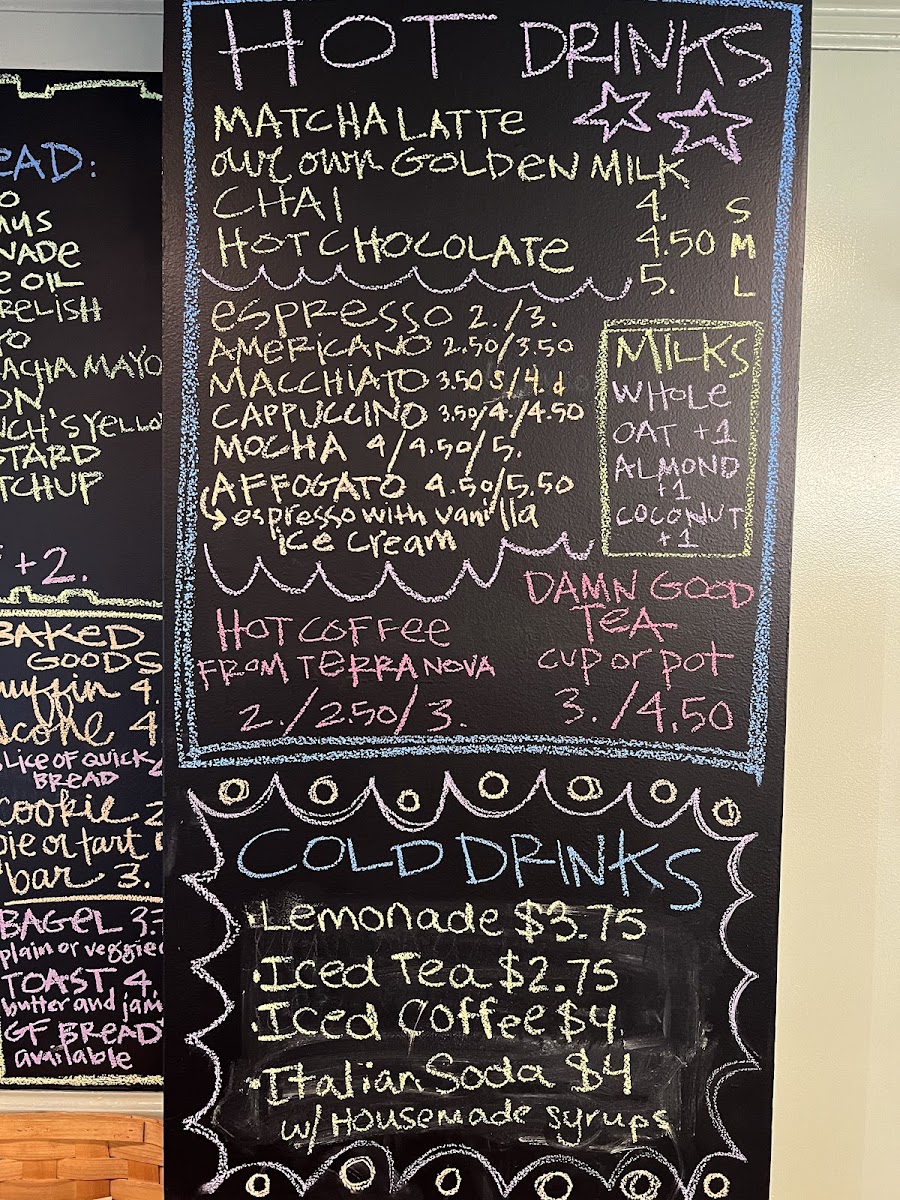 HOT DRINKS
MATCHA LATTE
our own GOLDEN MILK
CHAI 4. S
HOT CHOCOLATE 4.50 M
5. L
espresso 2./3.
AMERICANO 2.50/3.50
MACCHIATO 3.50 S/4. d
CAPPUCCINO 3.50/4./4.50
MOCHA 4/4.50/5.
AFFOGATO 4.50/5.50
espresso with vanilla
ice cream
MILKS
WHOLE
OAT +1
ALMOND
+1
COCONUT
+1
HOT COFFEE
FROM TERRA NOVA
2./2.50/3.
DAMN GOOD
TEA
cup or pot
3./4.50
COLD DRINKS
·Lemonade $3.75
·Iced Tea $2.75
·Iced Coffee $4
·Italian Soda $4
w/ Housemade syrups
EAD:
O
MUS
NADE
E OIL
RELISH
YO
ACHA MAYO
ON
NCH'S YELLO
STARD
TCHUP
+2.
BAKED
GOODS
muffin 4.
scone 4
SLICE OF QUICK
BREAD
cookie 2
pie or tart
bar 3.
BAGEL 3.
plain or veggie
TOAST 4.
butter and jam
GF BREAD
available